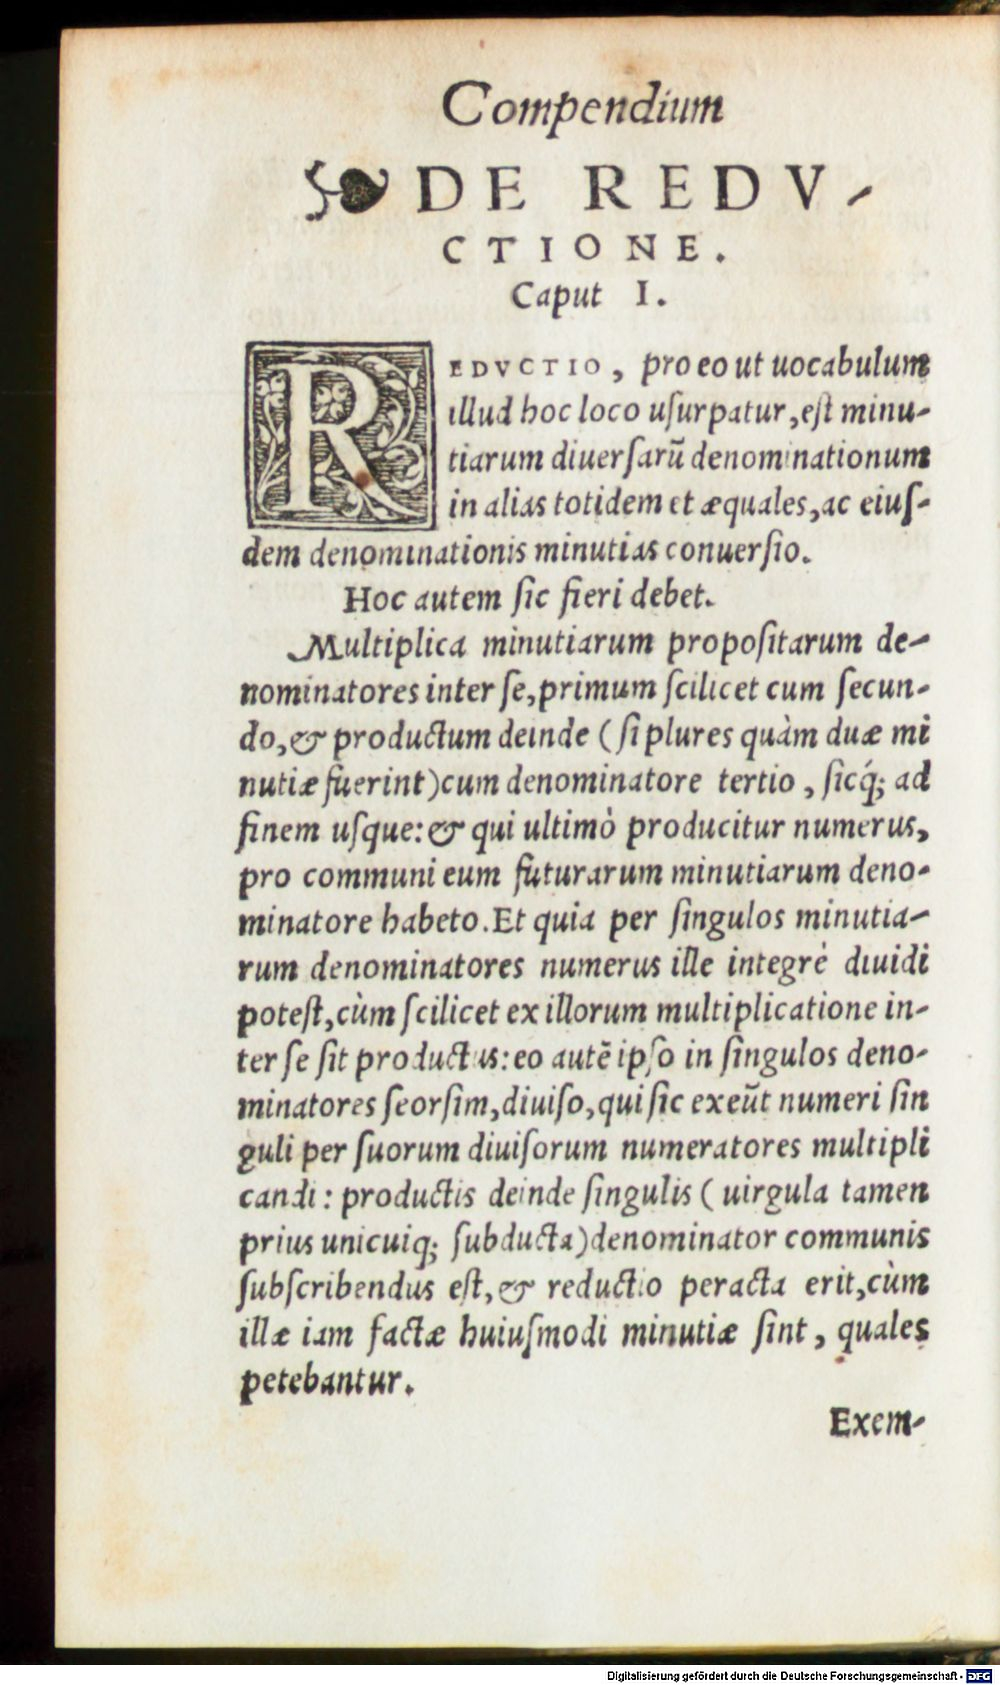 Compendium
DE REDV-
CTIONE.
Caput I.
REDVCTIO, pro eo ut uocabulum
illud hoc loco uſurpatur, eſt minu-
tiarum diuerſarū denominationum
in alias totidem et æquales, ac eiuſ-
dem denominationis minutias conuerſio.
Hoc autem ſic fieri debet.
Multiplica minutiarum propoſitarum de-
nominatores inter ſe, primum ſcilicet cum ſecun-
do, & productum deinde (ſi plures quàm duæ mi
nutiæ fuerint) cum denominatore tertio, ſicq́; ad
finem uſque: & qui ultimò producitur numerus,
pro communi eum futurarum minutiarum deno-
minatore habeto. Et quia per ſingulos minutia-
rum denominatores numerus ille integrè diuidi
poteſt, cùm ſcilicet ex illorum multiplicatione in-
ter ſe ſit productus: eo autē ipſo in ſingulos deno-
minatores ſeorſim, diuiſo, qui ſic exeūt numeri ſin
guli per ſuorum diuiſorum numeratores multipli
candi: productis deinde ſingulis (uirgula tamen
prius unicuiq; ſubducta) denominator communis
ſubſcribendus eſt, & reductio peracta erit, cùm
illæ iam factæ huiuſmodi minutiæ ſint, quales
petebantur.
Exem-
Digitalisierung gefördert durch die Deutsche Forschungsgemeinschaft - DFG